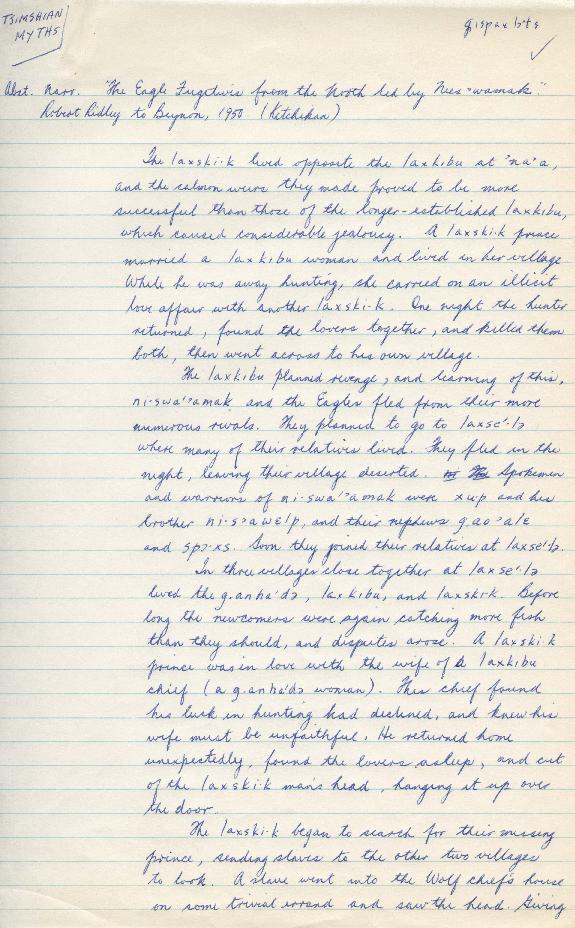 TSIMSHIAN
MYTHS
gispaxlɔ'ts
Abst. Narr. "The Eagle Fugitives from the North led by Nees-wamak."
Robert Ridley to Beynon, 1950. (Ketchikan)
The laxski·k lived opposite the laxkibu at 'na'a,
and the salmon weirs they made proved to be more
successful than those of the longer-established laxkibu,
which caused considerable jealousy. A laxski·k prince
married a laxkibu woman and lived in her village
While he was away hunting, she carried on an illicit
love affair with another laxski·k. One night the hunter
returned, found the lovers together, and killed them
both, then went across to his own village.
The laxkibu planned revenge, and learning of this,
ni·swa'ʼamak and the Eagles fled from their more
numerous rivals. They planned to go to laxse'·lɔ
where many of their relatives lived. They fled in the
night, leaving their village deserted. Spokesmen
and warriors of ni·swa'ʼamak were xwp and his
brother ni·sʼawɛlp, and their nephews g.aoʼalɛ
and spɔ·xs. Soon they joined their relatives at laxse'·lɔ.
In three villages close together at laxse'·lɔ
lived the g.anha'dɔ, laxkibu, and laxski·k. Before
long the newcomers were again catching more fish
than they should, and disputes arose. A laxski·k
prince was in love with the wife of a laxkibu
chief (a g.anha'dɔ woman). This chief found
his luck in hunting had declined, and knew his
wife must be unfaithful. He returned home
unexpectedly, found the lovers asleep, and cut
off the laxski·k man's head, hanging it up over
the door.
The laxski·k began to search for their missing
prince, sending slaves to the other two villages
to look. A slave went into the Wolf chief's house
on some trivial errand and saw the head. Giving